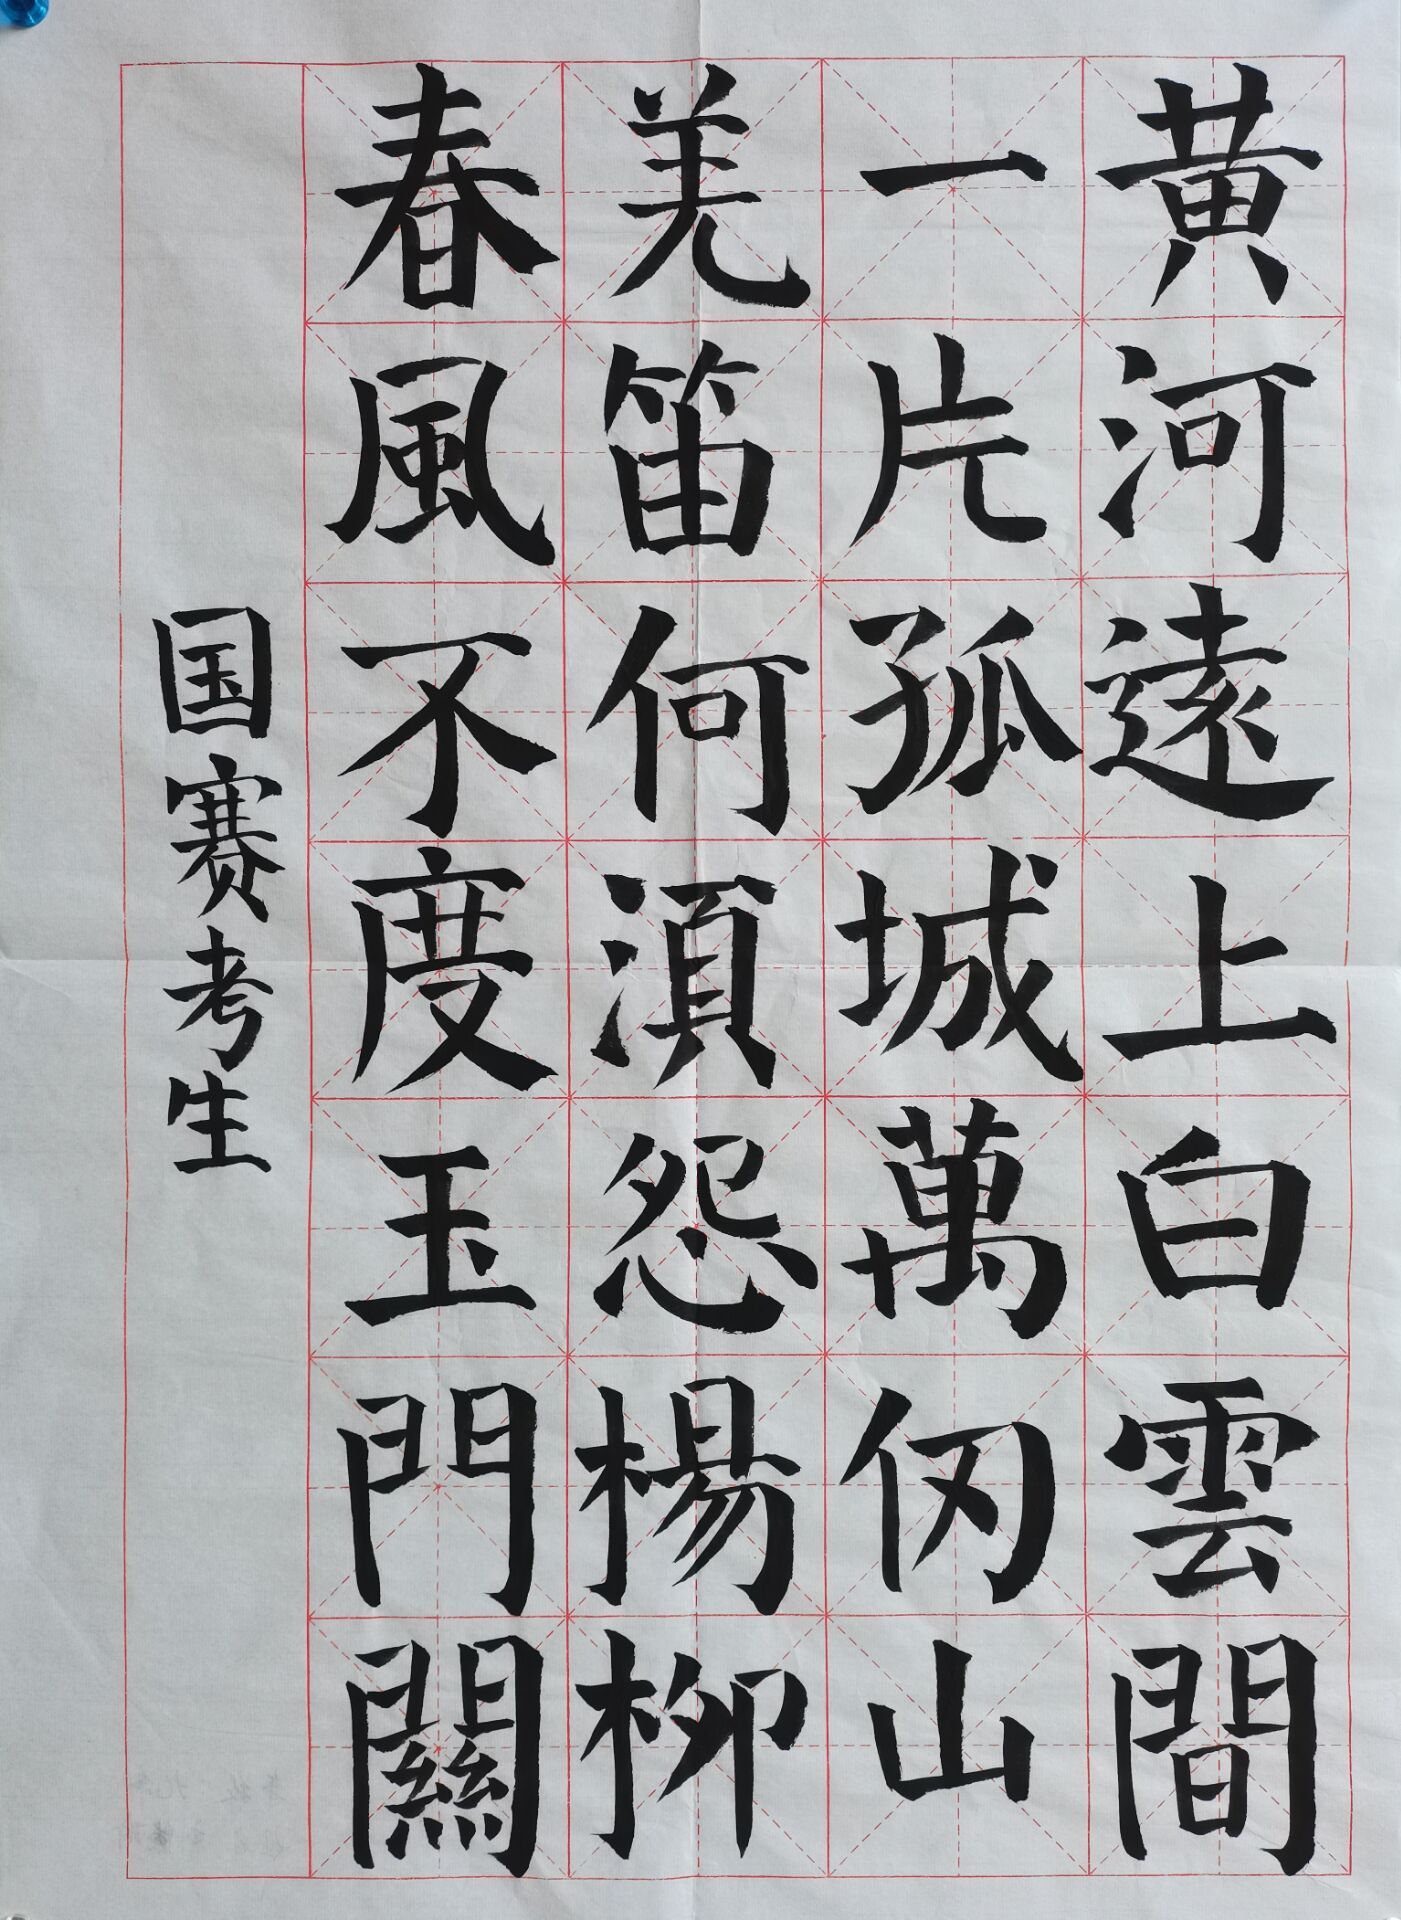 黄河遠上白雲間
一片孤城萬仞山
羌笛何湏怨楊柳
春風不度玉門關
国赛考生